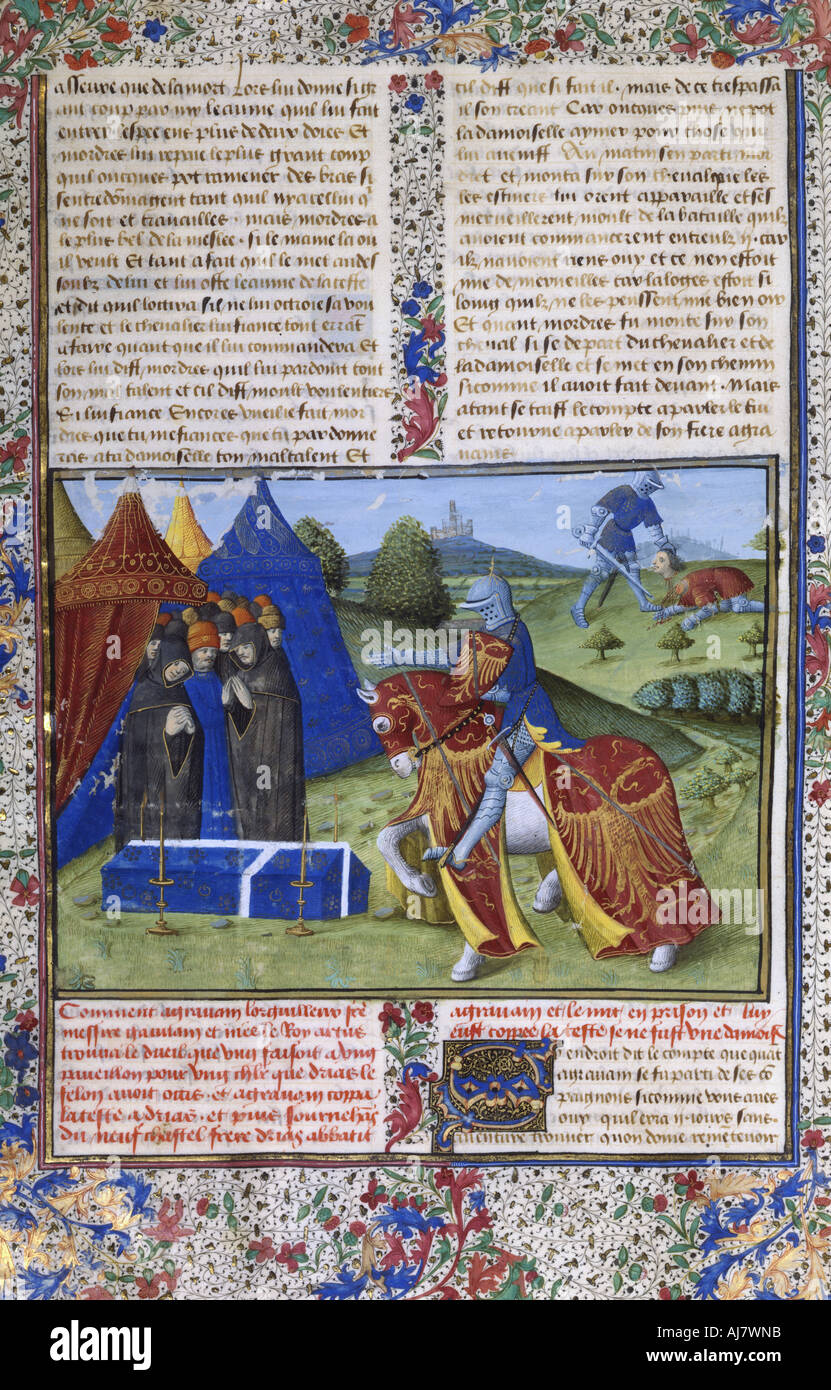 asseure que de la mort Lors lui donne si gr
ant coup par my le eaume quil lui fait
entrer lespee ens plus de deux doies Et
mordres lui repaie le plus grant coup
quil oncques pot ramener des bras si
sentredommagent tant quil ny a cellui q
ne soit et travailles . mais mordres a
le plus bel de la meslee . si le maine la ou
il veult Et tant a fait quil le met au des
soubz de lui et lui oste le eaume de la teste
et dit quil loccira sil ne lui octroie sa vou
lente et le chevalier lui fiance tout errat
a faire quant que il lui commandera Et
lors lui dist mordres quil lui pardoint tout
son mal talent et cil dist moult voulentiers
Si lui fiance Encores vueil ie fait mor
dres que tu me fiances que tu pardonne
ras a ta damoiselle ton maltalent Et
cil dist que si fait il . mais de ce trespassa
il son creant Car oncques puis ne pot
la damoiselle aymer pour chose qui
lui avenist Au matin sen parti mor
et monta sur son cheval que les
les estuiere lui orent appareille et ses
merveillerent moult de la bataille quilz
avoient commancerent entreulx ii . car
ilz navoient riens ouy et ce nen estoit
mie de merveilles car la loges estoit si
loing quilz ne les peussent mie bien oir
Et quant mordres fu monte sur son
cheval si se depart du chevalier et de
la damoiselle et se met en son chemin
sicomme il avoit fait devant . Mais
atant se taist le compte a parler le lui
et retourne a parler de son frere agra
vains
Comment agravain lorguilleux fre
messire gauvain et niece le Roy artus
trouva le dueil que lung faisoit a ung
paveillon pour ung chlr que drias le
felon avoit occis . et agravain coppa
la teste a drias . et puis sournehan
du neuf chastel frere drias abbatit
agravain et le mit en prison et luy
eust coppee la teste se ne fust une damoise
endroit dit le compte que quat
agravain se fu parti de ses co
paignons si comme vous aves
ouy quil erra ii . iours sans
aventure trouver quon doie ramentevoir
alamy
alamy
Image ID: AJ7WNB
www.alamy.com